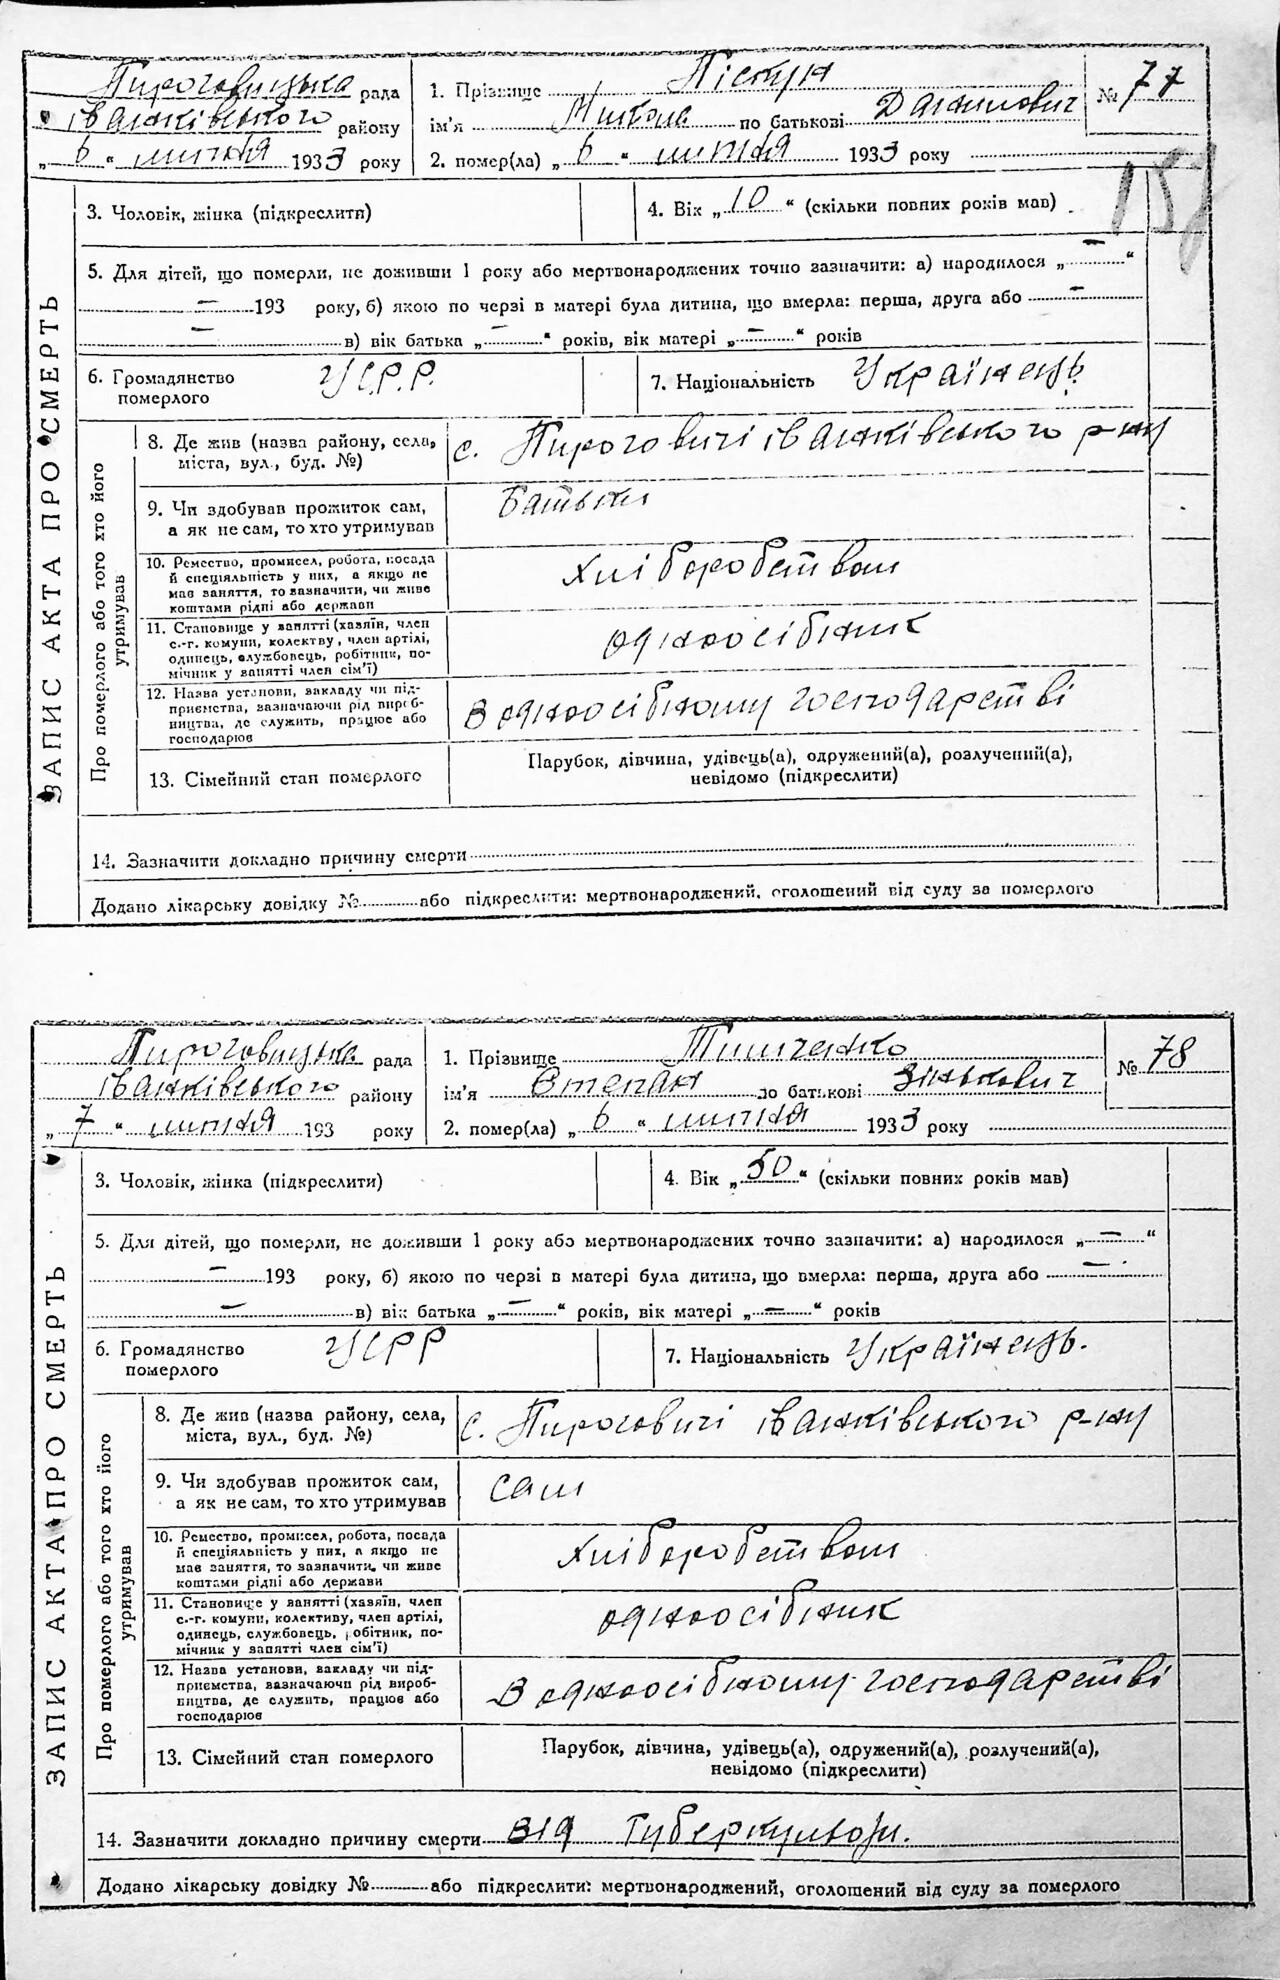 Пироговицька рада
іванківського району
„ 6 “ липня 1933 року
1. Прізвище Піскун
ім'я Микола по батькові Данилович
2. помер(ла) „ 6 “ липня 1933 року
№ 77
157
ЗАПИС АКТА ПРО СМЕРТЬ
3. Чоловік, жінка (підкреслити)
4. Вік „ 10 “ (скільки повних років мав)
5. Для дітей, що померли, не доживши 1 року або мертвонароджених точно зазначити: а) народилося „ — “
— 193 року, б) якою по черзі в матері була дитина, що вмерла: перша, друга або —
— в) вік батька „ — “ років, вік матері „ — “ років
6. Громадянство
померлого
УС.Р.Р.
7. Національність Українець.
Про померлого або того хто його
утримував
8. Де жив (назва району, села,
міста, вул., буд. №)
с. Пироговичі іванківського р-ну
9. Чи здобував прожиток сам,
а як не сам, то хто утримував
батьки
10. Ремество, промисел, робота, посада
й спеціяльність у них, а якщо не
має заняття, то зазначити, чи живе
коштами рідні або держави
Хліборобством
11. Становище у занятті (хазяїн, член
с.-г. комуни, колектву, член артілі,
одинець, службовець, робітник, по-
мічник у занятті член сім'ї)
одноосібник
12. Назва установи, закладу чи під-
приємства, зазначаючи рід вироб-
ництва, де служить, працює або
господарює
В одноосібному господарстві
13. Сімейний стан померлого
Парубок, дівчина, удівець(а), одружений(а), розлучений(а),
невідомо (підкреслити)
14. Зазначити докладно причину смерти
Додано лікарську довідку № або підкреслити: мертвонароджений, оголошений від суду за померлого
Пироговицька рада
іванківського району
„ 7 “ липня 193 року
1. Прізвище Тимченко
ім'я Степан по батькові Зінькович
2. помер(ла) „ 6 “ липня 1933 року
№ 78
ЗАПИС АКТА ПРО СМЕРТЬ
3. Чоловік, жінка (підкреслити)
4. Вік „ 50 “ (скільки повних років мав)
5. Для дітей, що померли, не доживши 1 року або мертвонароджених точно зазначити: а) народилося „ — “
— 193 року, б) якою по черзі в матері була дитина, що вмерла: перша, друга або —
— в) вік батька „ — “ років, вік матері „ — “ років
6. Громадянство
померлого
УСРР
7. Національність Українець.
Про померлого або того хто його
утримував
8. Де жив (назва району, села,
міста, вул., буд. №)
с. Пироговичі іванківського р-ну
9. Чи здобував прожиток сам,
а як не сам, то хто утримував
сам
10. Ремество, промисел, робота, посада
й спеціяльність у них, а якщо не
має заняття, то зазначити, чи живе
коштами рідні або держави
Хліборобством
11. Становище у занятті (хазяїн, член
с.-г. комуни, колективу, член артілі,
одинець, службовець, робітник, по-
мічник у занятті член сім'ї)
одноосібник
12. Назва установи, закладу чи під-
приємства, зазначаючи рід вироб-
ництва, де служить, працює або
господарює
В одноосібному господарстві
13. Сімейний стан померлого
Парубок, дівчина, удівець(а), одружений(а), розлучений(а),
невідомо (підкреслити)
14. Зазначити докладно причину смерти від туберкульози.
Додано лікарську довідку № або підкреслити: мертвонароджений, оголошений від суду за померлого